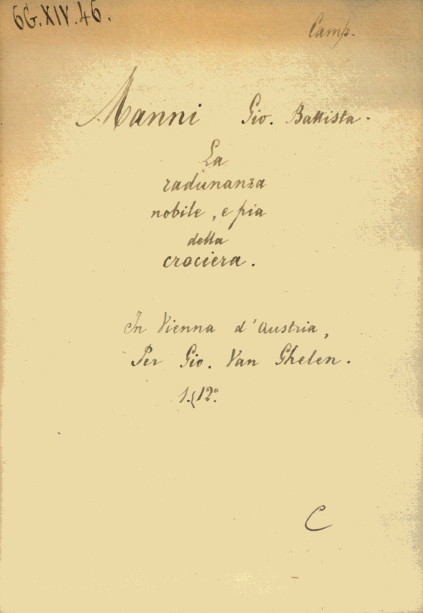 6G.XIV.46.
Camp.
Manni Gio. Battista.
La
radunanza
nobile, e pia
della
crociera.
In Vienna d'Austria,
Per Gio. Van Ghelen.
12°.
C